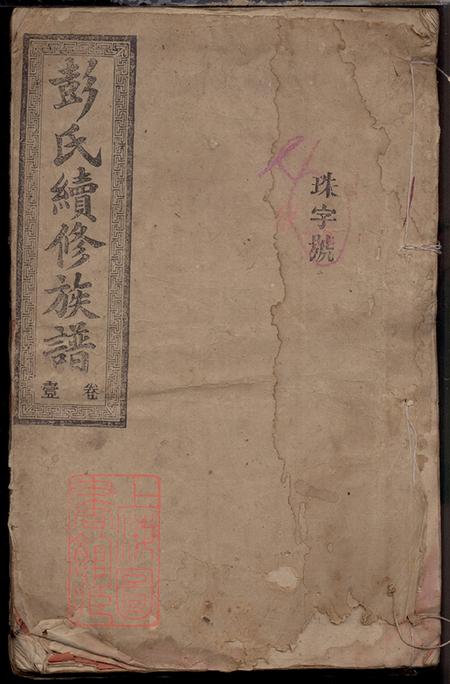 彭氏續修族譜
卷壹
珠字號
上海圖
書館藏